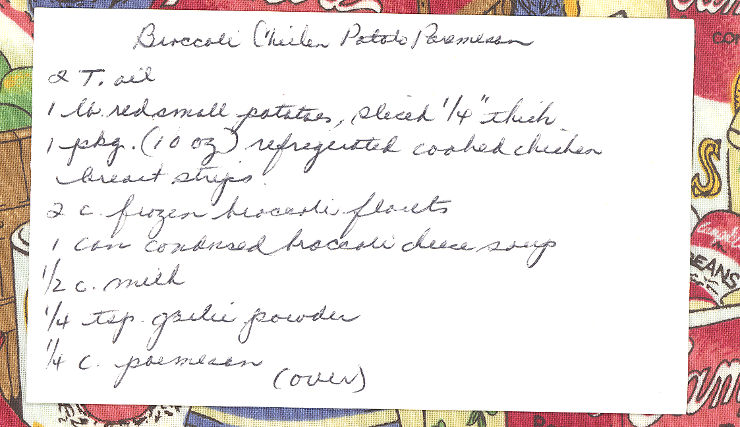 Broccoli Chicken Potato Parmesan
2 T. oil
1 lb. red small potatoes, sliced 1/4" thick
1 pkg. (10 oz) refrigerated cooked chicken
breast strips.
2 c. frozen broccoli florets
1 can condensed broccoli cheese soup
1/2 c. milk
1/4 tsp. garlic powder
1/4 c. parmesan
(over)
CO
S
Campbell's
BEANS